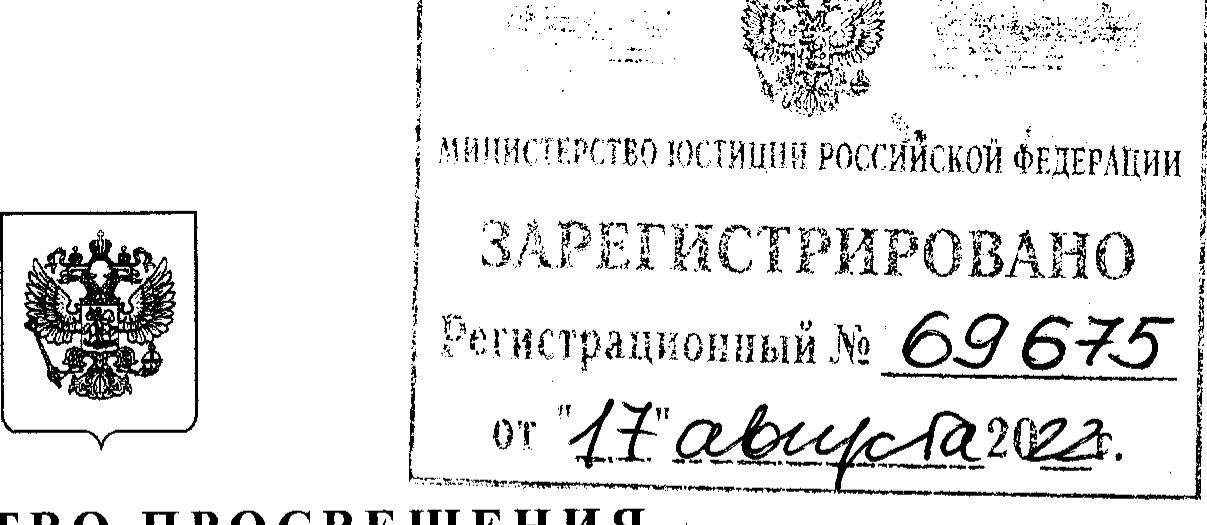 МИНИСТЕРСТВО ЮСТИЦИИ РОССИЙСКОЙ ФЕДЕРАЦИИ
ЗАРЕГИСТРИРОВАНО
Регистрационный № 69675
от "17" августа 2022г.
ТВО ПРОСВЕЩЕНИЯ